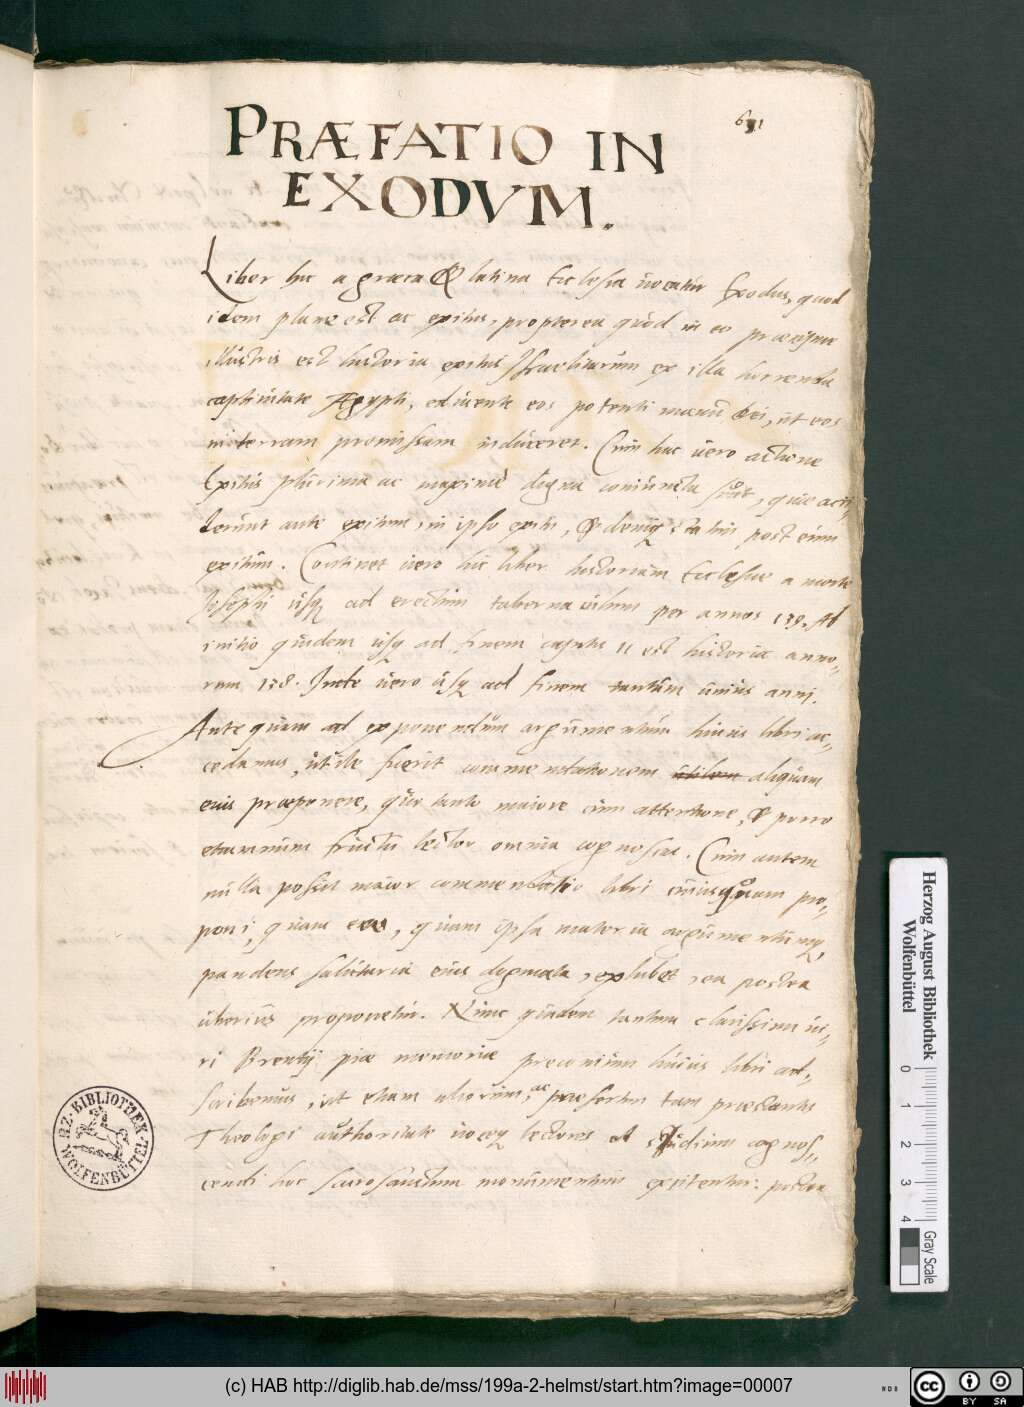 691
PRÆFATIO IN
EXODVM.
Liber hic a græca & latina Ecclesia uocatur Exodus, quod
idem plane est ac exitus, propterea quòd in eo præcipue
illustris est historia exitus Israelitarum ex illa horrenda
captiuitate Ægypti, educente eos potenti manu dei, ut eos
in terram promissam induceret. Cum hac uero actione
Exitus plurima ac maximè digna coniuncta sunt, quæ acci-
derunt ante exitum, in ipso exitu, & deniq statim post eum
exitum. Continet uero hic liber historiam Ecclesiæ a morte
Josephi usq ad erectum tabernaculum per annos 139. Ab
initio quidem usq ad finem caputis 11 est historia anno-
rum 138. Inde uero usq ad finem tantùm unius anni.
Antequam ad exponendum argumentum huius libri ac-
cedamus, utile fuerit commendationem utilem aliquam
eius præponere, quo tanto maiore cum attentione, & porro
etiam cum fructu lector omnia cognoscat. Cum autem
nulla possit maior commendatio libri cuiusquam pro-
poni, quam ea, quam ipsa materia argumentumq,
pandens salutaria eius dogmata, exhibet, ea postea
uberius proponetur. Nunc quidem tantum clarissimi ui-
ri Brentij piæ memoriæ præconium huius libri ad-
scribemus, ut etiam aliorum, ac præsertim tam præstantis
Theologi authoritate uoceq lectores ad studium cognos-
cendi hoc sacrosanctum monumentum excitentur: postea
HZ·BIBLIOTHEK
WOLFENBÜTTEL
Herzog August Bibliothek
Wolfenbüttel
0 1 2 3 4
Gray Scale
(c) HAB http://diglib.hab.de/mss/199a-2-helmst/start.htm?image=00007
cc BY SA